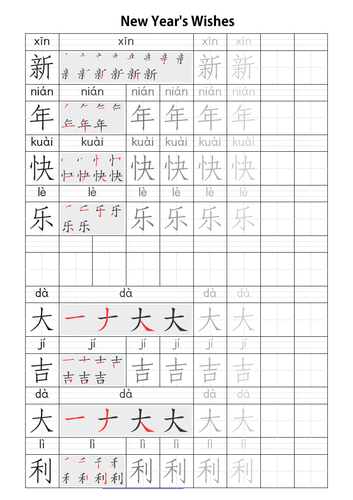 New Year's Wishes
xīn xīn xīn xīn
新 新 新 新
nián nián nián nián nián nián
年 年 年 年 年 年
kuài kuài kuài kuài kuài kuài
快 快 快 快 快 快
lè lè lè lè lè lè
乐 乐 乐 乐 乐 乐
dà dà dà dà
大 一 ナ 大 大 大 大
jí jí jí jí jí jí
吉 吉 吉 吉 吉 吉
dà dà dà dà
大 一 ナ 大 大 大 大
lì lì lì lì lì lì
利 利 利 利 利 利